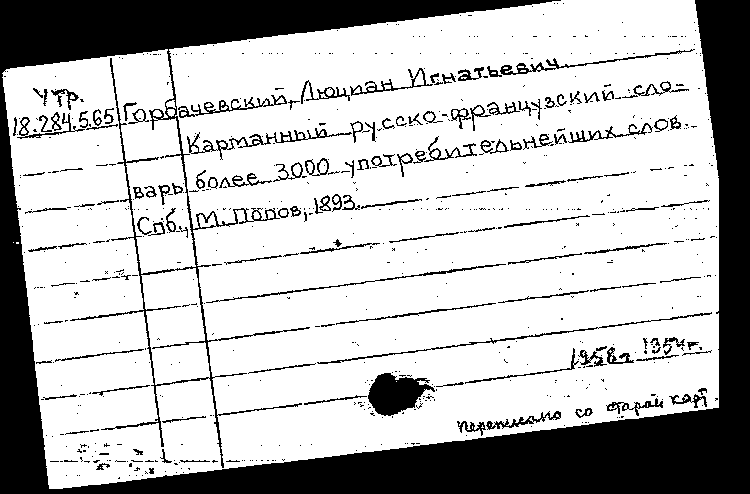 Утр.
18.284.5.65 Горбачевский, Люциан Игнатьевич.
Карманный русско-французский сло-
варь более 3000 употребительнейших слов.
Спб., М. Попов, 1893.
1958г 1954г.
Переписано со старой карт.